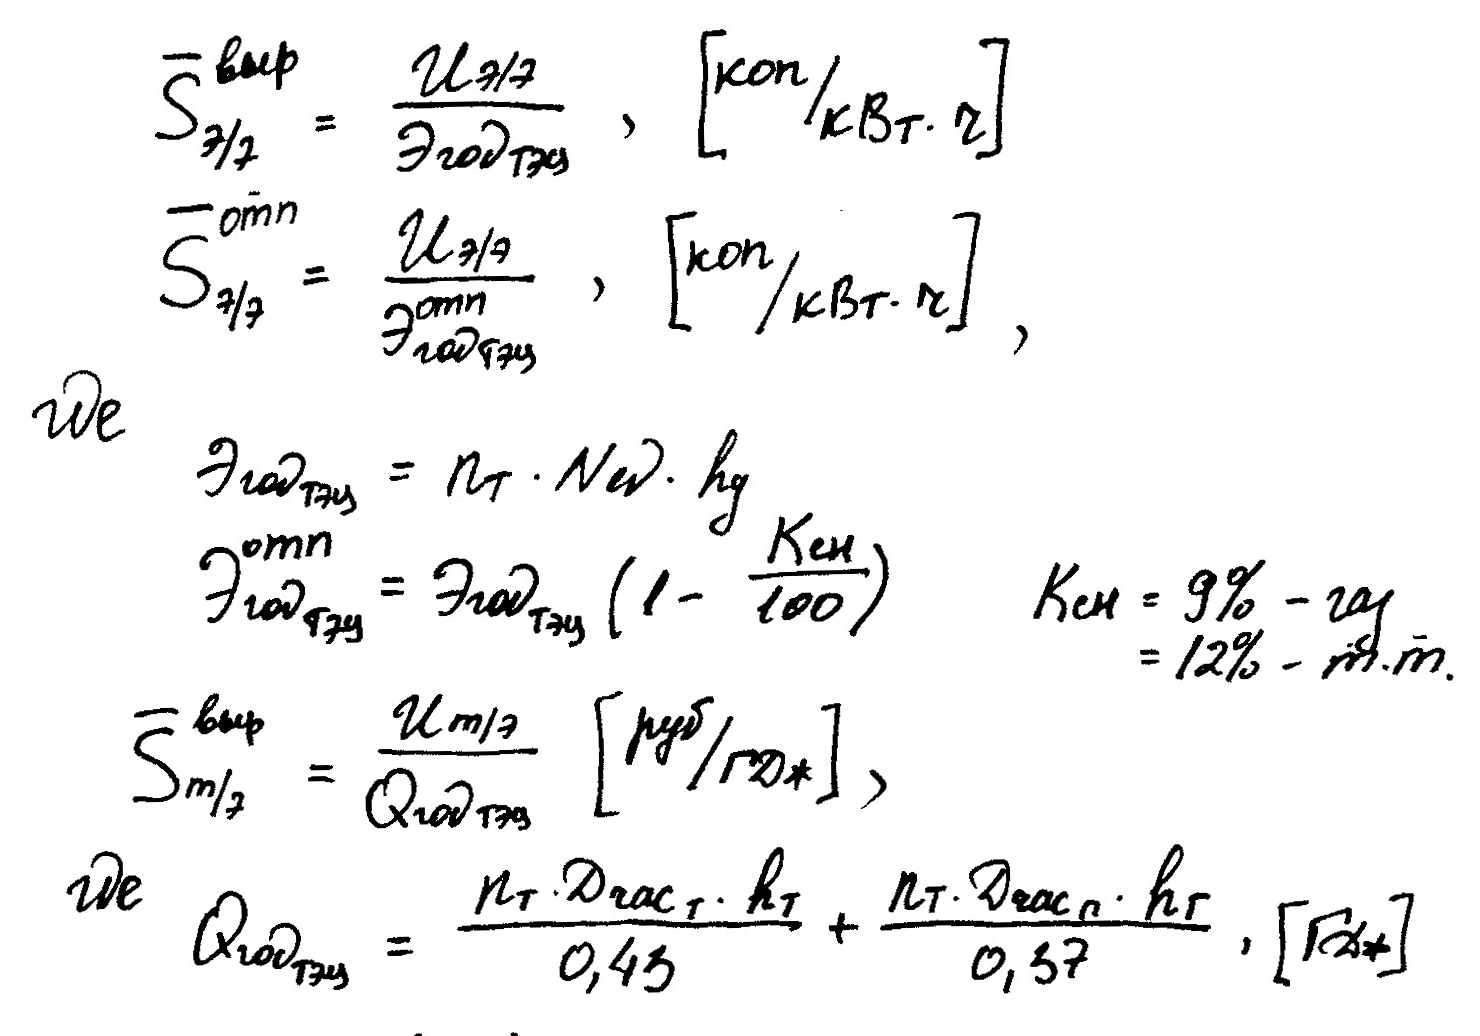 S̄э/э^выр = Иэ/э / Эгод ТЭЦ , [коп/кВт·ч]
S̄э/э^отп = Иэ/э / Э^отп год ТЭЦ , [коп/кВт·ч] ,
где
Эгод ТЭЦ = nт · Nед · hg
Э^отп год ТЭЦ = Эгод ТЭЦ (1 - Kсн / 100) Kсн = 9% - газ
= 12% - т.т.
S̄т/э^выр = Ит/э / Qгод ТЭЦ [руб/ГДж] ,
где Qгод ТЭЦ = nт · Dчас т · hт / 0,43 + nт · Dчас п · hг / 0,37 , [ГДж]